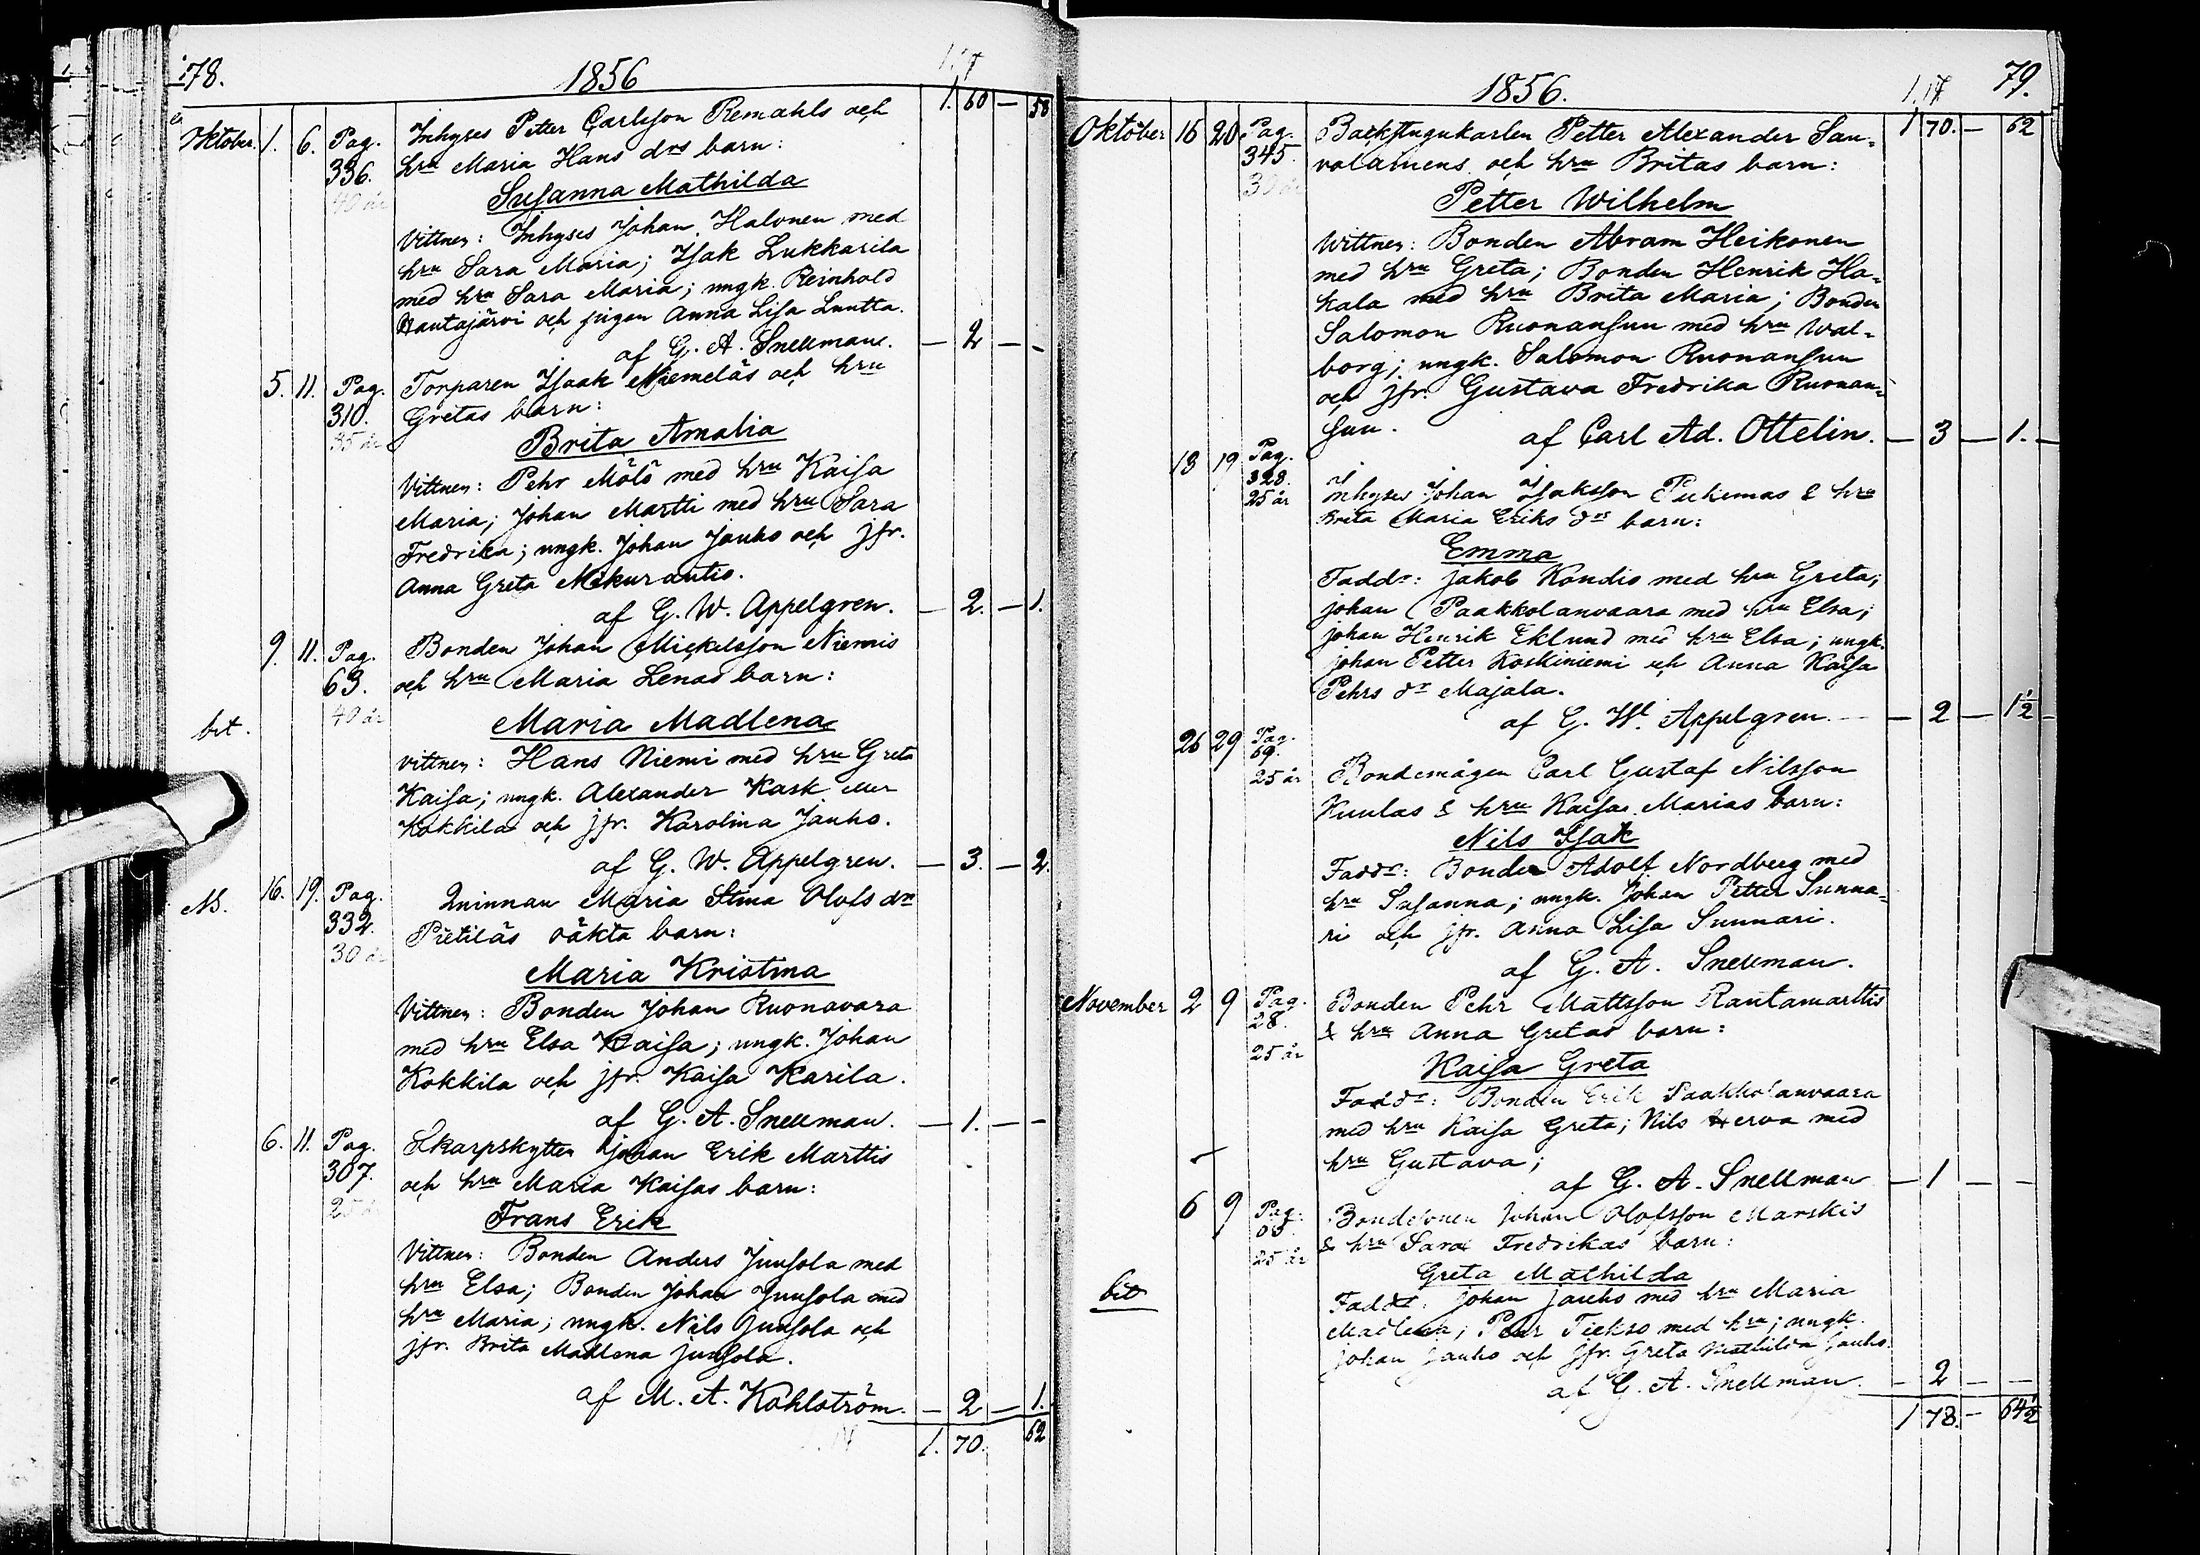 178.
1856
1.17
1. 60 — 58
Oktober. 1. 6. Pag. 336. 40 år
Inhyses Petter Carlsson Remahls och
hru Maria Hans drs barn:
Susanna Mathilda
Vittnen: Inhyses Johan Halonen med
hru Sara Maria; Isak Lukkarila
med hru Sara Maria; ungk. Reinhold
Hautajärvi och pigan Anna Lisa Luutta.
af G. A. Snellman. — 2 — -
5. 11. Pag. 310. 35 år
Torparen Isaak Niemeläs och hru
Gretas barn:
Brita Amalia
Vittnen: Pehr Mölö med hru Kaisa
Maria; Johan Martti med hru Sara
Fredrika; ungk. Johan Jauho och jfr.
Anna Greta Mäkurautio.
af G. W. Appelgren. — 2. — 1.
9. 11. Pag. 63. 40 år
Bonden Johan Mickelsson Niemis
och hru Maria Lenas barn:
bet.
Maria Madlena
Vittnen: Hans Niemi med hru Greta
Kaisa; ungk. Alexander Kask eller
Kokkila och jfr. Karolina Jauho.
af G. W. Appelgren. — 3. — 2.
16. 19. Pag. 332. 30 år
Qvinnan Maria Stina Olofs dr
Pietiläs oäkta barn:
Maria Kristina
Vittnen: Bonden Johan Ruonavara
med hru Elsa Kaisa; ungk. Johan
Kokkila och jfr. Kaisa Karila.
af G. A. Snellman. — 1. — -
6. 11. Pag. 307. 25 år
Skarpskytten Johan Erik Marttis
och hru Maria Kaisas barn:
Frans Erik
Vittnen: Bonden Anders Juusola med
hru Elsa; Bonden Johan Juusola med
hru Maria; ungk. Nils Juusola och
jfr. Brita Madlena Juusola.
af M. A. Kohlström. — 2 — 1.
1. 70. 62
1856.
1.17
79.
Oktober 15 20 Pag. 345. 30 år
1 70. — 62
Backstugukarlen Petter Alexander Sau-
volainens och hru Britas barn:
Petter Wilhelm
Wittnen: Bonden Abram Heikonen
med hru Greta; Bonden Henrik Ha-
kala med hru Brita Maria; Bonden
Salomon Ruonansuu med hru Wal-
borg; ungk. Salomon Ruonansuu
och jfr. Gustava Fredrika Ruonan-
suu.
af Carl Ad. Ottelin. — 3 — 1. —
13 19 Pag. 328. 25 år
Inhyses Johan Isaksson Peikemas & hru
Brita Maria Eriks drs barn:
Emma
Faddr: Jakob Kondio med hru Greta;
Johan Paakkolanvaara med hru Elsa;
Johan Henrik Eklund med hru Elsa; ungk.
Johan Petter Koskiniemi och Anna Kaisa
Pehrs dr Majala.
af G. W. Appelgren. — 2 — 1½
26 29 Pag. 69. 25 år
Bondemågen Carl Gustaf Nilsson
Kuulas & hru Kaisas Marias barn:
Nils Isak
Faddr: Bonden Adolf Nordberg med
hru Susanna; ungk. Johan Petter Sunna-
ri och jfr. Anna Lisa Sunnari.
af G. A. Snellman.
November 2 9 Pag. 28. 25 år
Bonden Pehr Mattsson Rautamarttis
& hru Anna Gretas barn:
Kaisa Greta
Faddr: Bonden Erik Paakkolanvaara
med hru Kaisa Greta; Nils Herva med
hru Gustava;
af G. A. Snellman — 1 — —
6 9 Pag. 25 år
Bondesonen Johan Olofsson Marskis
& hru Sara Fredrikas barn:
bet
Greta Mathilda
Faddr: Johan Jauho med hru Maria
Madlena; Pehr Tiekso med hru; ungk.
Johan Jauho och jfr. Greta Mathilda Jauho.
af G. A. Snellman. — 2 — —
1 78. — 64½